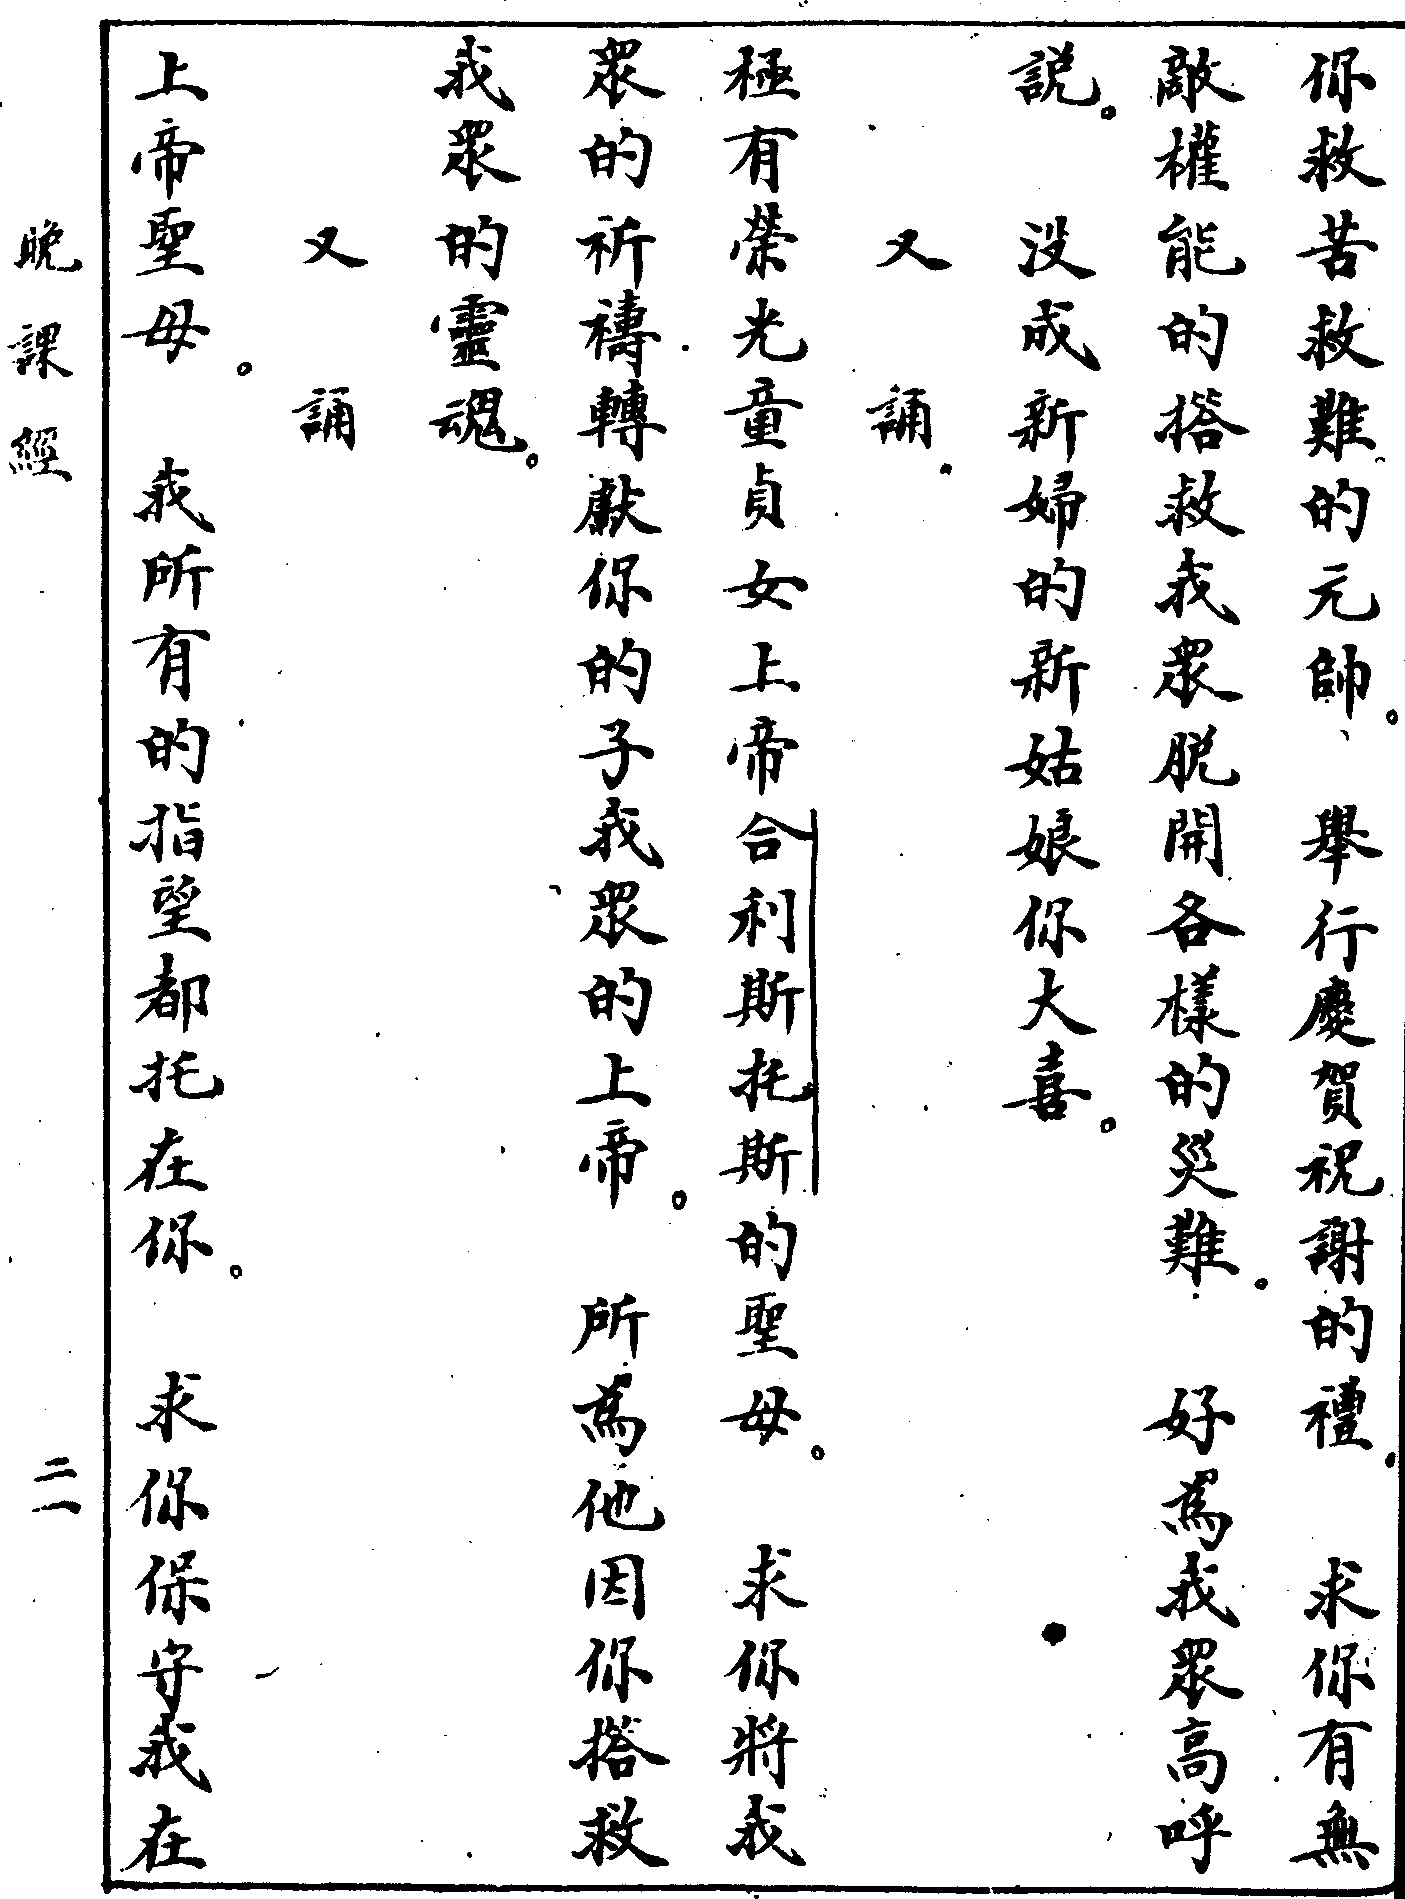 你救苦救難的元帥。舉行慶賀祝謝的禮。求你有無
敵權能的搭救我眾脱開各樣的災難。好爲我眾高呼
説。没成新婦的新姑娘你大喜。
又誦
極有榮光童貞女上帝合利斯托斯的聖母。求你將我
眾的祈禱轉獻你的子我眾的上帝。所爲他因你搭救
我眾的靈魂。
又誦
上帝聖母。我所有的指望都托在你。求你保守我在
晚課經
二一